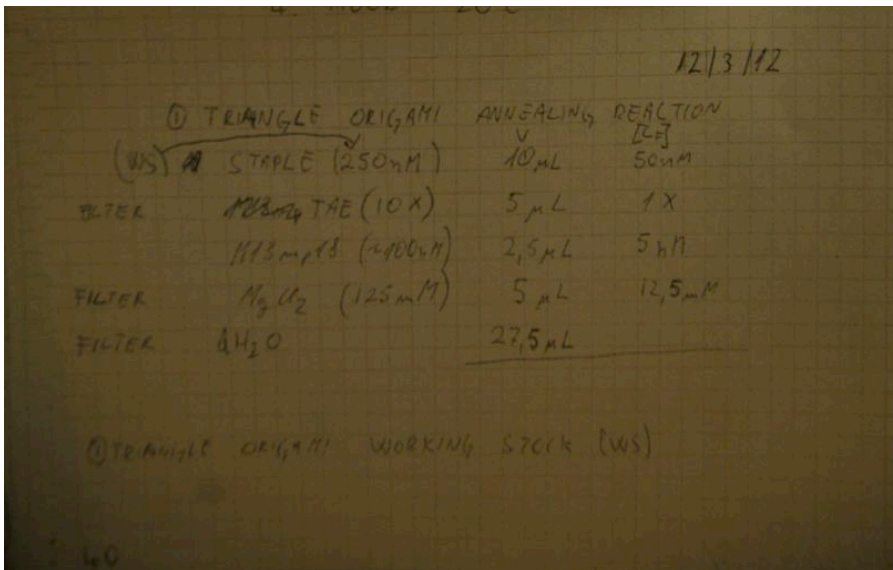 12/3/12
① TRIANGLE ORIGAMI ANNEALING REACTION
V [CF]
(WS) STAPLE (250nM) 10µL 50nM
FILTER TAE (10X) 5µL 1X
M13mp18 (~100nM) 2,5µL 5nM
FILTER MgCl₂ (125mM) 5µL 12,5mM
FILTER dH₂O 27,5µL
① TRIANGLE ORIGAMI WORKING STOCK (WS)